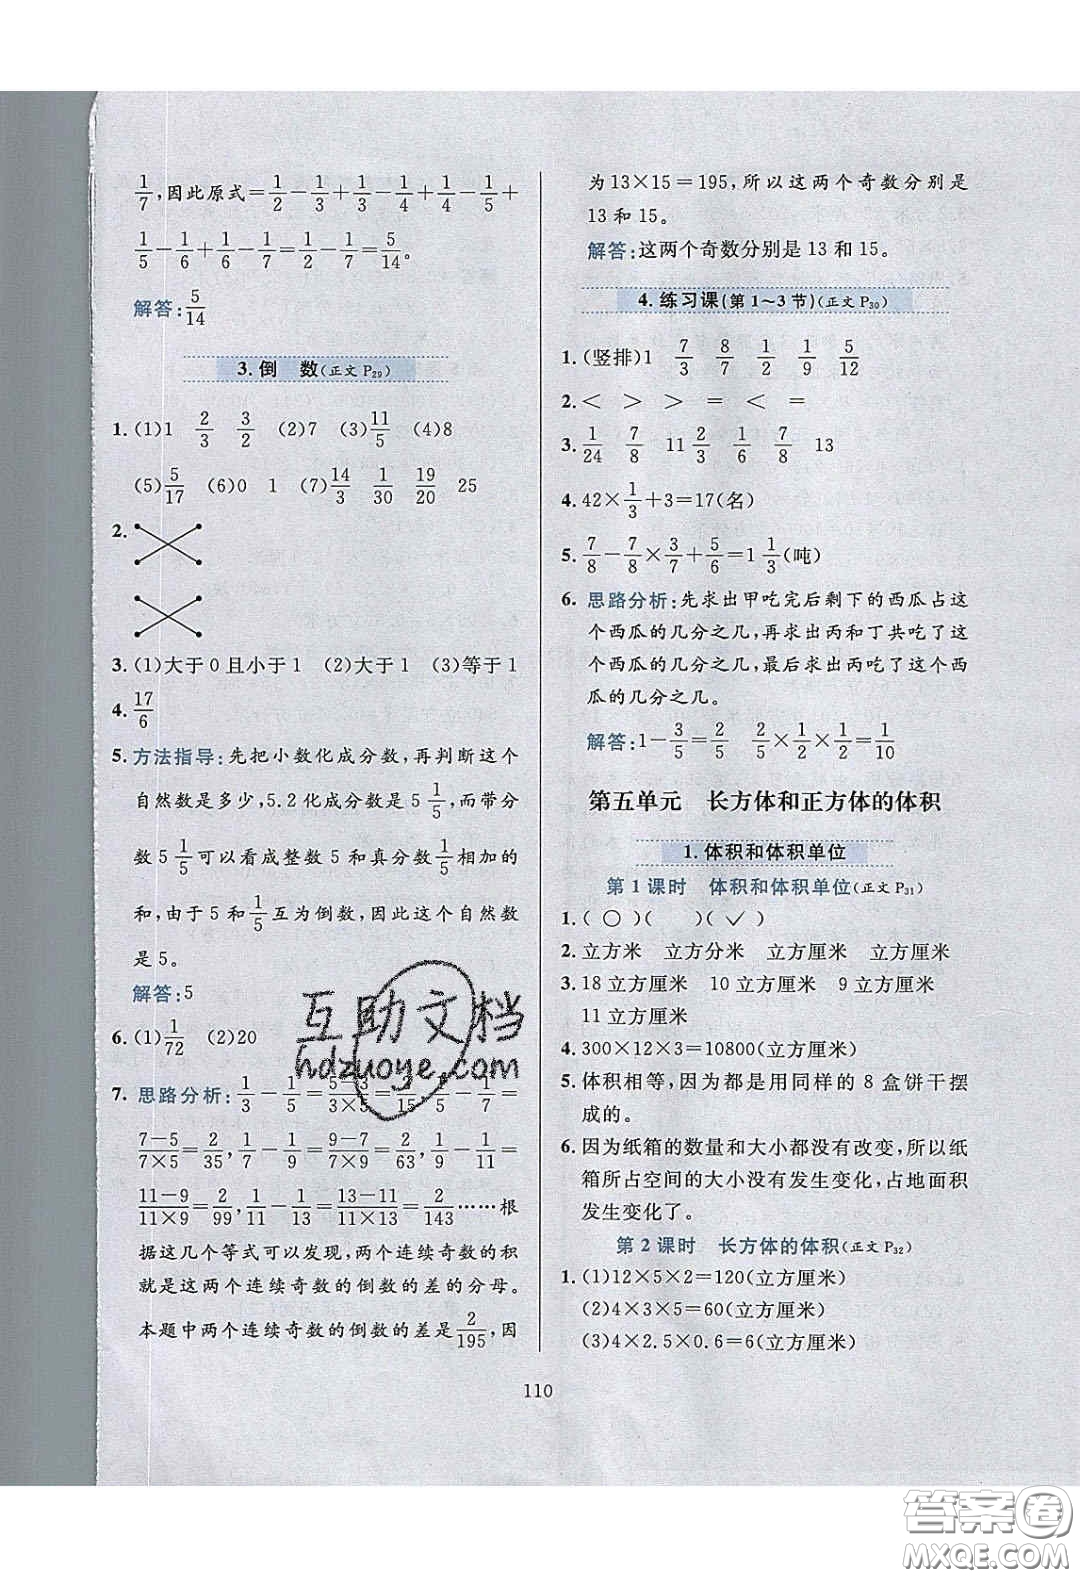 1/7,因此原式=1/2-1/3+1/3-1/4+1/4-1/5+
1/5-1/6+1/6-1/7=1/2-1/7=5/14。
解答:5/14
3.倒 数(正文 P29)
1. (1)1 2/3 3/2 (2)7 (3)11/5 (4)8
(5)5/17 (6)0 1 (7)14/3 1/30 19/20 25
2.
3. (1)大于 0 且小于 1 (2)大于 1 (3)等于 1
4. 17/6
5. 方法指导:先把小数化成分数,再判断这个
自然数是多少,5.2 化成分数是 5 1/5,而带分
数 5 1/5 可以看成整数 5 和真分数 1/5 相加的
和,由于 5 和 1/5 互为倒数,因此这个自然数
是 5。
解答:5
6. (1)1/72 (2)20
7. 思路分析:1/3-1/5=(5-3)/(3×5)= /15,1/5-1/7=
(7-5)/(7×5)=2/35,1/7-1/9=(9-7)/(7×9)=2/63,1/9-1/11=
(11-9)/(11×9)=2/99,1/11-1/13=(13-11)/(11×13)=2/143……根
据这几个等式可以发现,两个连续奇数的积
就是这两个连续奇数的倒数的差的分母。
本题中两个连续奇数的倒数的差是2/195,因
为 13×15=195,所以这两个奇数分别是
13 和 15。
解答:这两个奇数分别是 13 和 15。
4.练习课(第 1～3 节)(正文 P30)
1. (竖排)1 7/3 8/7 1/2 1/9 5/12
2. < > > = < =
3. 1/24 7/8 11 2/3 1/6 7/8 13
4. 42×1/3+3=17(名)
5. 7/8-7/8×3/7+5/6=1 1/3(吨)
6. 思路分析:先求出甲吃完后剩下的西瓜占这
个西瓜的几分之几,再求出丙和丁共吃了这
个西瓜的几分之几,最后求出丙吃了这个西
瓜的几分之几。
解答:1-3/5=2/5 2/5×1/2×1/2=1/10
第五单元 长方体和正方体的体积
1.体积和体积单位
第 1 课时 体积和体积单位(正文 P31)
1. (○)( )(✓)
2. 立方米 立方分米 立方厘米 立方厘米
3. 18 立方厘米 10 立方厘米 9 立方厘米
11 立方厘米
4. 300×12×3=10800(立方厘米)
5. 体积相等,因为都是用同样的 8 盒饼干摆
成的。
6. 因为纸箱的数量和大小都没有改变,所以纸
箱所占空间的大小没有发生变化,占地面积
发生变化了。
第 2 课时 长方体的体积(正文 P32)
1. (1)12×5×2=120(立方厘米)
(2)4×3×5=60(立方厘米)
(3)4×2.5×0.6=6(立方厘米)
110
互助文档
hdzuoye.com
答案圈
MXQE.COM